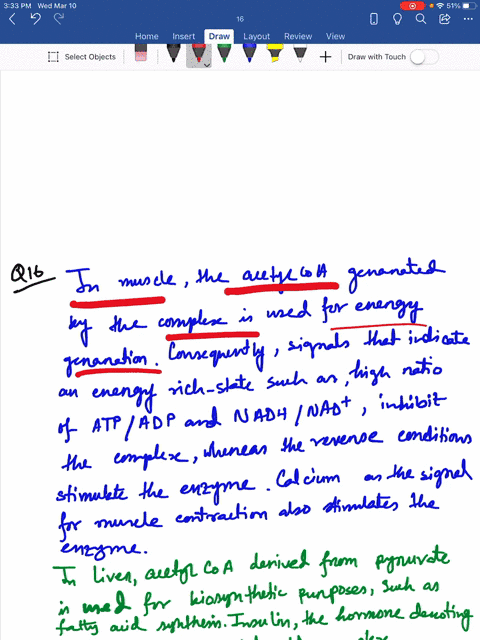 3:33 PM Wed Mar 10
51%
16
Home Insert Draw Layout Review View
Select Objects
Draw with Touch
Q16 In muscle, the acetyl CoA genanated
by the complex is used for energy
genanation. Consequently, signals that indicate
an energy rich-state such as, high ratio
of ATP/ADP and NADH/NAD+, inhibit
the complex, whereas the reverse conditions
stimulate the enzyme. Calcium as the signal
for muscle contraction also stimulates the
enzyme.
In liver, acetyl CoA derived from pyruvate
is used for biosynthetic purposes, such as
fatty acid synthesis. Insulin, the hormone denoting